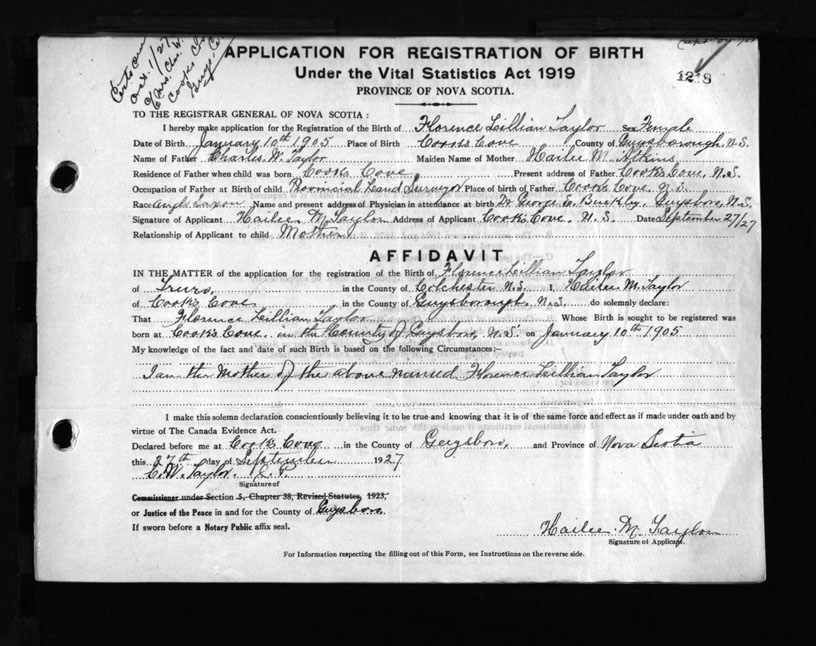 Oct. 1/27
APPLICATION FOR REGISTRATION OF BIRTH
Under the Vital Statistics Act 1919
PROVINCE OF NOVA SCOTIA.
TO THE REGISTRAR GENERAL OF NOVA SCOTIA :
I hereby make application for the Registration of the Birth of Florence Lillian Taylor Sex Female
Date of Birth January 10th 1905 Place of Birth Cooks Cove County of Guysborough, N.S.
Name of Father Charles W. Taylor Maiden Name of Mother Hailee M. Atkins
Residence of Father when child was born Cooks Cove Present address of Father Cook's Cove, N.S.
Occupation of Father at Birth of child Provincial Land Surveyor Place of birth of Father Cook's Cove N.S.
Race Anglo Saxon Name and present address of Physician in attendance at birth Dr George E. Buckley, Guysboro, N.S.
Signature of Applicant Hailee M Taylor Address of Applicant Cook's Cove. N.S. Dated September 27/27
Relationship of Applicant to child Mother
AFFIDAVIT
IN THE MATTER of the application for the registration of the Birth of Florence Lillian Taylor
of Truro, in the County of Colchester N.S. I, Hailee M. Taylor
of Cook's Cove in the County of Guysborough, N.S. do solemnly declare:
That Florence Lillian Taylor Whose Birth is sought to be registered was
born at Cook's Cove. in the County of Guysboro, N.S. on January 10th 1905
My knowledge of the fact and date of such Birth is based on the following Circumstances:—
I am the Mother of the above named Florence Lillian Taylor
I make this solemn declaration conscientiously believing it to be true and knowing that it is of the same force and effect as if made under oath and by
virtue of The Canada Evidence Act.
Declared before me at Cook's Cove in the County of Guysboro, and Province of Nova Scotia
this 27th day of September 1927
C. W. Taylor. J. P.
Signature of
Commissioner under Section 5, Chapter 38, Revised Statutes, 1923,
or Justice of the Peace in and for the County of Guysboro.
If sworn before a Notary Public affix seal.
Hailee M. Taylor
Signature of Applicant.
For Information respecting the filling out of this Form, see Instructions on the reverse side.